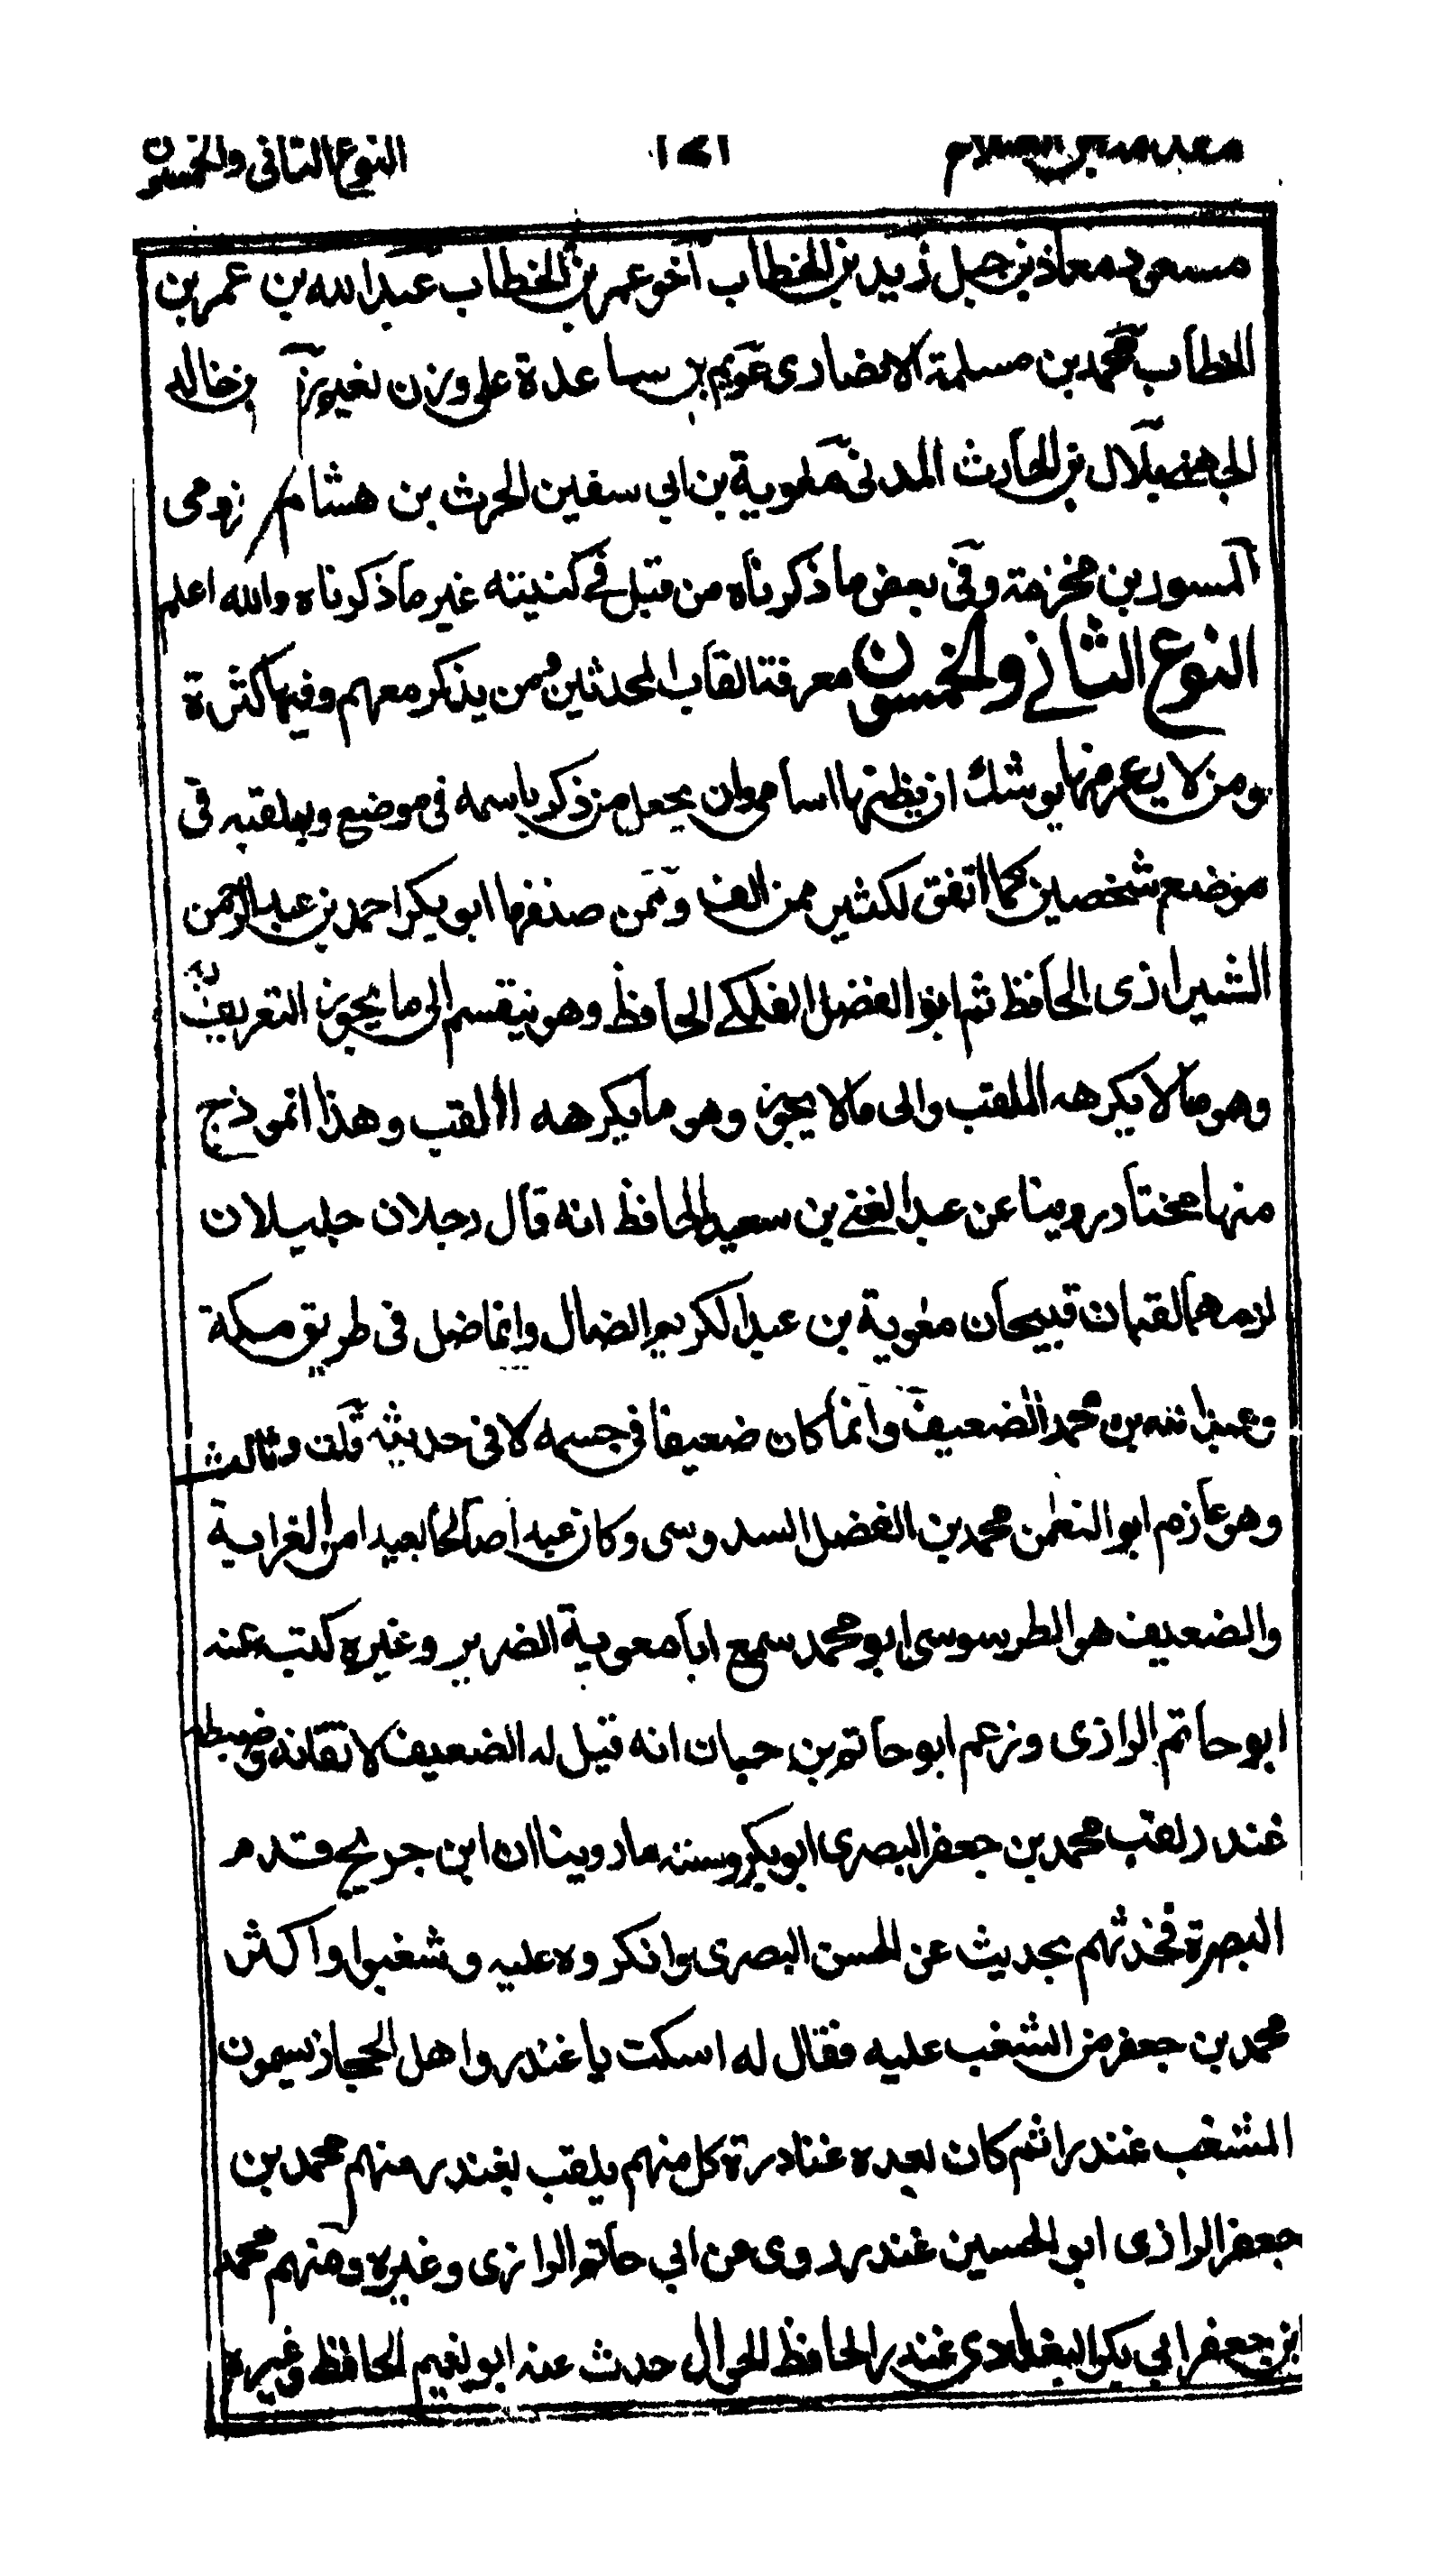 مقدمه ابن الصلاح ١٤١ النوع الثانى والخمسون
مسعود معاذ بن جبل زيد بن الخطاب اخو عمر بن الخطاب عبد الله بن عمر بن
الخطاب محمد بن مسلمة الانصارى عويم بن ساعدة على وزن نعيم زيد بن خالد
الجهنى بلال بن الحارث المدنى معوية بن ابي سفين الحرث بن هشام المخزومى
المسور بن مخرمة وفى بعض ما ذكرناه من قبل فى كنيته غير ما ذكرناه والله اعلم
النوع الثانى والخمسون معرفة القاب المحدثين ومن يذكر معهم وفيها كثرة
ومن لا يعرفها يوشك ان يظنها اسامى وان يجعل من ذكر باسمه فى موضع وبلقبه فى
موضع شخصين كما اتفق لكثير ممن الف وممن صنفها ابو بكر احمد بن عبد الرحمن
الشيرازى الحافظ ثم ابو الفضل الفلكى الحافظ وهو ينقسم الى ما يجوز التعريف به
وهو ما لا يكرهه الملقب والى ما لا يجوز وهو ما يكرهه الملقب وهذا انموذج
منها مختار روينا عن عبد الغنى بن سعيد الحافظ انه قال رجلان جليلان
لزمهما لقبان قبيحان معوية بن عبد الكريم الضال وانما ضل فى طريق مكة
وعبد الله بن محمد الضعيف وانما كان ضعيفا فى جسمه لا فى حديثه قلت وثالث
وهو عازم ابو النعمن محمد بن الفضل السدوسى وكان عبدا صالحا بعيدا من الغرابية
والضعيف هو الطرسوسى ابو محمد سمع ابا معوية الضرير وغيره كتب عنه
ابو حاتم الرازى وزعم ابو حاتم بن حبان انه قيل له الضعيف لاتقانه وضبطه
غندر لقب محمد بن جعفر البصرى ابو بكر وسببه ما روينا ان ابن جريج قدم
البصرة فحدثهم بحديث عن الحسن البصرى وانكروه عليه وشغبوا واكثر
محمد بن جعفر من الشغب عليه فقال له اسكت يا غندر واهل الحجاز يسمون
المشغب غندرا ثم كان بعده غنادرة كل منهم يلقب بغندر منهم محمد بن
جعفر الرازى ابو الحسين غندر روى عن ابي حاتم الرازى وغيره ومنهم محمد
بن جعفر ابي بكر البغدادى غندر الحافظ الجوال حدث عنه ابو نعيم الحافظ وغيره